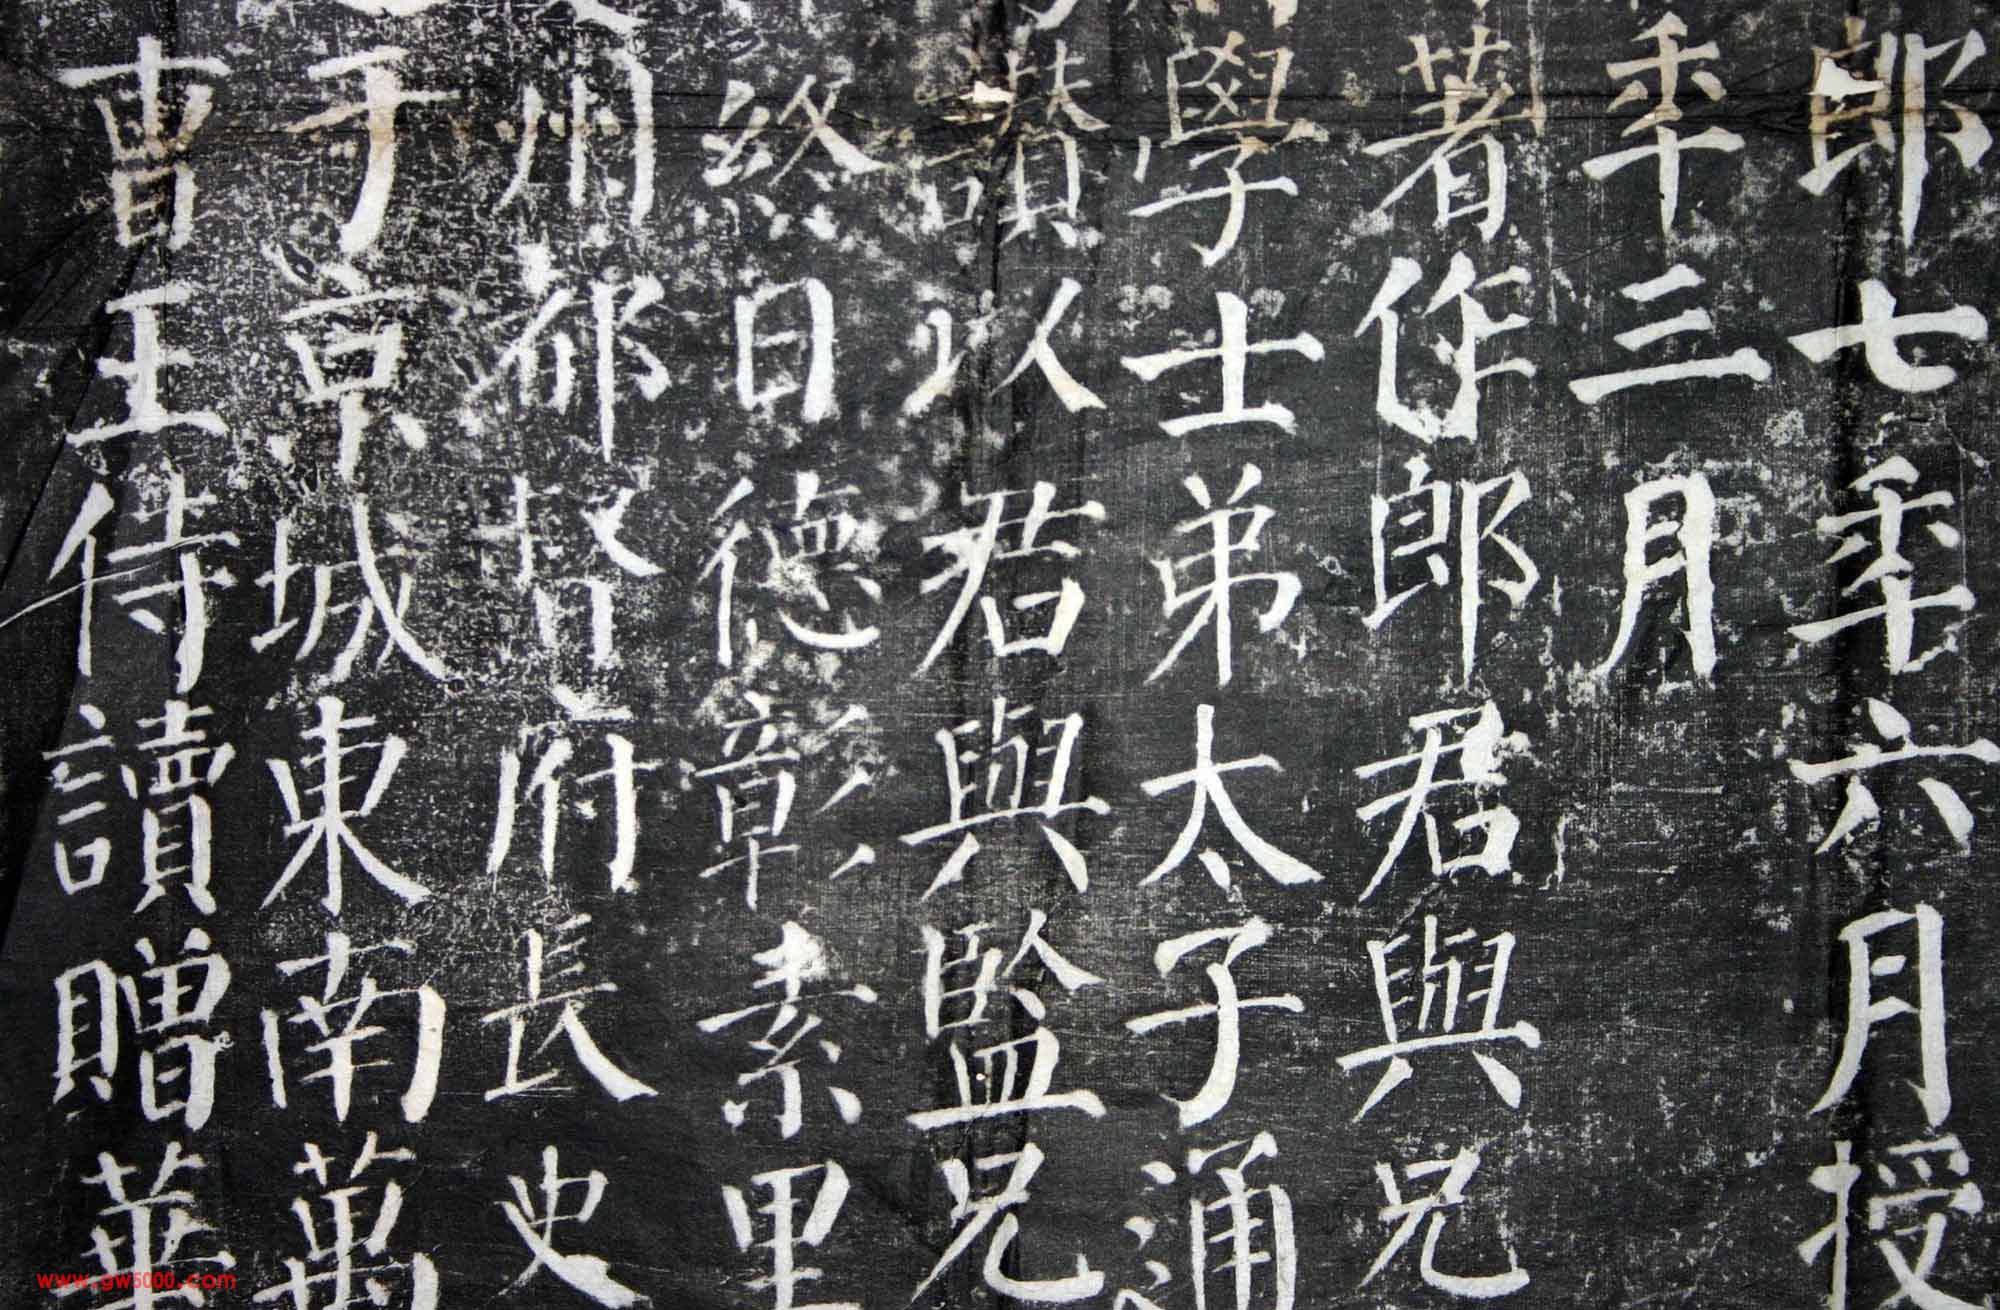 郎七秊六月授
秊三月
著作郎君與兄
學士弟太子通
讚以君與監兄
終日德彰素里
州都督府長史
于京城東南萬
曹王侍讀贈華
www.gw5000.com